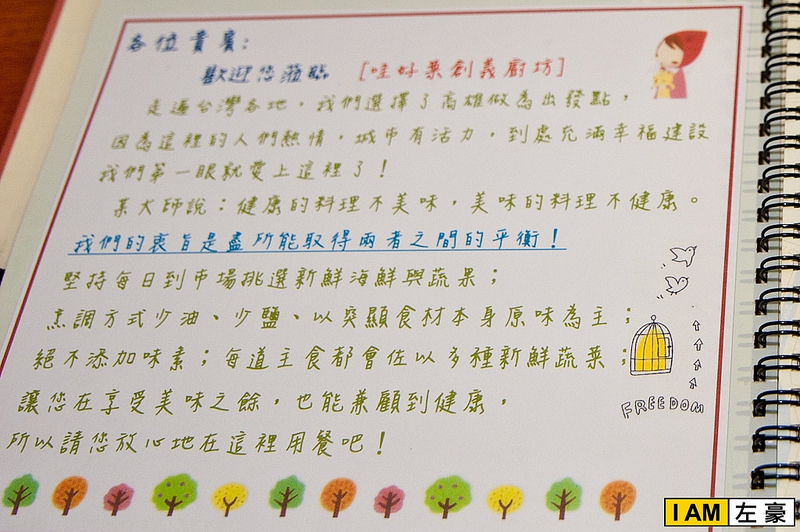 各位貴賓：
歡迎您蒞臨 [哇好菓創義廚坊]
走遍台灣各地，我們選擇了高雄做為出發點，
因為這裡的人們熱情，城市有活力，到處充滿幸福建設
我們第一眼就愛上這裡了！
某大師說：健康的料理不美味，美味的料理不健康。
我們的衷旨是盡所能取得兩者之間的平衡！
堅持每日到市場挑選新鮮海鮮與蔬果；
烹調方式少油、少鹽、以突顯食材本身原味為主；
絕不添加味素；每道主食都會佐以多種新鮮蔬菜；
讓您在享受美味之餘，也能兼顧到健康，
所以請您放心地在這裡用餐吧！
FREEDOM
I AM 左豪